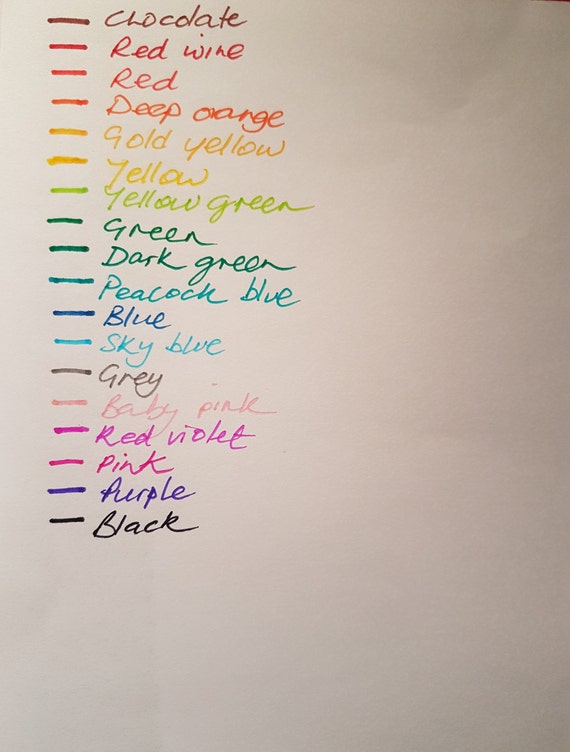 Chocolate
Red wine
Red
Deep orange
Gold yellow
Yellow
Yellow green
Green
Dark green
Peacock blue
Blue
Sky blue
Grey
Baby pink
Red violet
Pink
Purple
Black